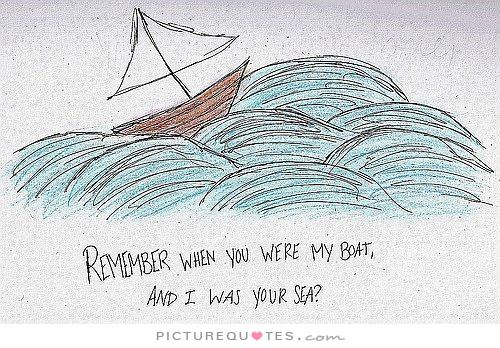 REMEMBER WHEN YOU WERE MY BOAT,
AND I WAS YOUR SEA?
PICTUREQUOTES.com